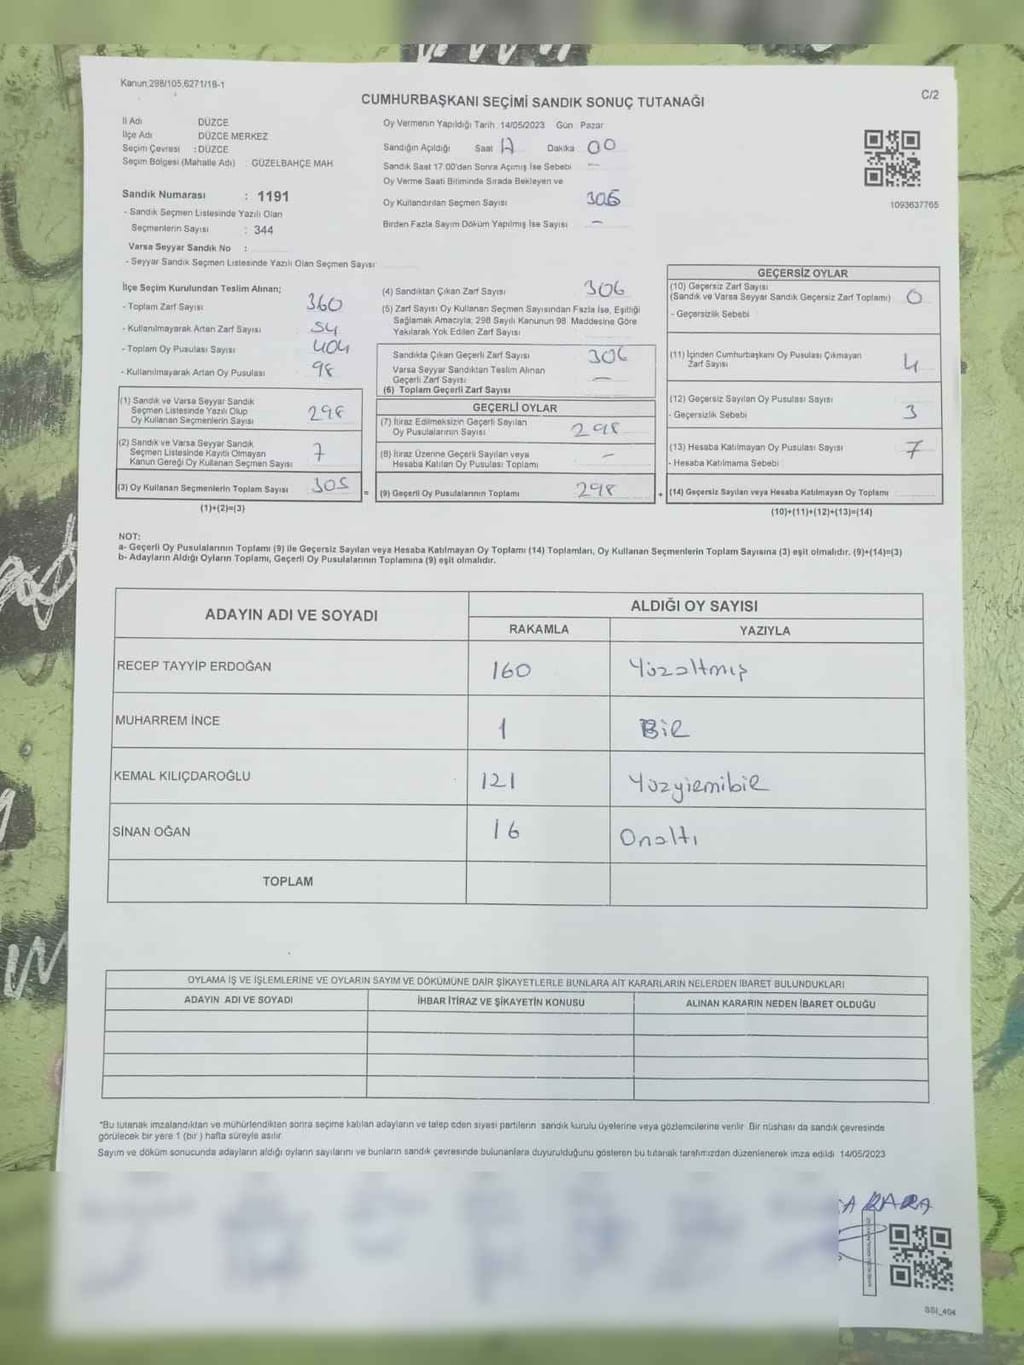 Kanun,298/105,6271/18-1
C/2
CUMHURBAŞKANI SEÇİMİ SANDIK SONUÇ TUTANAĞI
İl Adı DÜZCE
İlçe Adı DÜZCE MERKEZ
Seçim Çevresi : DÜZCE
Seçim Bölgesi (Mahalle Adı) : GÜZELBAHÇE MAH.
Sandık Numarası : 1191
- Sandık Seçmen Listesinde Yazılı Olan
Seçmenlerin Sayısı : 344
Varsa Seyyar Sandık No :
- Seyyar Sandık Seçmen Listesinde Yazılı Olan Seçmen Sayısı
Oy Vermenin Yapıldığı Tarih 14/05/2023 Gün Pazar
Sandığın Açıldığı Saat Dakika 00
Sandık Saat 17.00'den Sonra Açımış İse Sebebi —
Oy Verme Saati Bitiminde Sırada Bekleyen ve
Oy Kullandırılan Seçmen Sayısı 306
Birden Fazla Sayım Döküm Yapılmış İse Sayısı —
1093637765
İlçe Seçim Kurulundan Teslim Alınan;
- Toplam Zarf Sayısı 360
- Kullanılmayarak Artan Zarf Sayısı 54
- Toplam Oy Pusulası Sayısı 404
- Kullanılmayarak Artan Oy Pusulası 98
(1) Sandık ve Varsa Seyyar Sandık
Seçmen Listesinde Yazılı Olup
Oy Kullanan Seçmenlerin Sayısı 298
(2) Sandık ve Varsa Seyyar Sandık
Seçmen Listesinde Kayıtlı Olmayan
Kanun Gereği Oy Kullanan Seçmen Sayısı 7
(3) Oy Kullanan Seçmenlerin Toplam Sayısı 305
(1)+(2)=(3)
(4) Sandıktan Çıkan Zarf Sayısı 306
(5) Zarf Sayısı Oy Kullanan Seçmen Sayısından Fazla İse, Eşitliği
Sağlamak Amacıyla; 298 Sayılı Kanunun 98. Maddesine Göre
Yakılarak Yok Edilen Zarf Sayısı
Sandıkta Çıkan Geçerli Zarf Sayısı 306
Varsa Seyyar Sandıktan Teslim Alınan
Geçerli Zarf Sayısı —
(6) Toplam Geçerli Zarf Sayısı
GEÇERLİ OYLAR
(7) İtiraz Edilmeksizin Geçerli Sayılan
Oy Pusulalarının Sayısı 298
(8) İtiraz Üzerine Geçerli Sayılan veya
Hesaba Katılan Oy Pusulası Toplamı —
= (9) Geçerli Oy Pusulalarının Toplamı 298
GEÇERSİZ OYLAR
(10) Geçersiz Zarf Sayısı
(Sandık ve Varsa Seyyar Sandık Geçersiz Zarf Toplamı) 0
- Geçersizlik Sebebi
(11) İçinden Cumhurbaşkanı Oy Pusulası Çıkmayan
Zarf Sayısı 4
(12) Geçersiz Sayılan Oy Pusulası Sayısı 3
- Geçersizlik Sebebi
(13) Hesaba Katılmayan Oy Pusulası Sayısı 7
- Hesaba Katılmama Sebebi
+ (14) Geçersiz Sayılan veya Hesaba Katılmayan Oy Toplamı
(10)+(11)+(12)+(13)=(14)
NOT:
a- Geçerli Oy Pusulalarının Toplamı (9) ile Geçersiz Sayılan veya Hesaba Katılmayan Oy Toplamı (14) Toplamları, Oy Kullanan Seçmenlerin Toplam Sayısına (3) eşit olmalıdır. (9)+(14)=(3)
b- Adayların Aldığı Oyların Toplamı, Geçerli Oy Pusulalarının Toplamına (9) eşit olmalıdır.
ADAYIN ADI VE SOYADI ALDIĞI OY SAYISI
RAKAMLA YAZIYLA
RECEP TAYYİP ERDOĞAN 160 Yüzaltmış
MUHARREM İNCE 1 Bir
KEMAL KILIÇDAROĞLU 121 Yüzyiemibir
SİNAN OĞAN 16 Onaltı
TOPLAM
OYLAMA İŞ VE İŞLEMLERİNE VE OYLARIN SAYIM VE DÖKÜMÜNE DAİR ŞİKAYETLERLE BUNLARA AİT KARARLARIN NELERDEN İBARET BULUNDUKLARI
ADAYIN ADI VE SOYADI İHBAR İTİRAZ VE ŞİKAYETİN KONUSU ALINAN KARARIN NEDEN İBARET OLDUĞU
*Bu tutanak imzalandıktan ve mühürlendikten sonra seçime katılan adayların ve talep eden siyasi partilerin sandık kurulu üyelerine veya gözlemcilerine verilir. Bir nüshası da sandık çevresinde
görülecek bir yere 1 (bir ) hafta süreyle asılır.
Sayım ve döküm sonucunda adayların aldığı oyların sayılarını ve bunların sandık çevresinde bulunanlara duyurulduğunu gösteren bu tutanak tarafımızdan düzenlenerek imza edildi. 14/05/2023
KARA
SSI_404